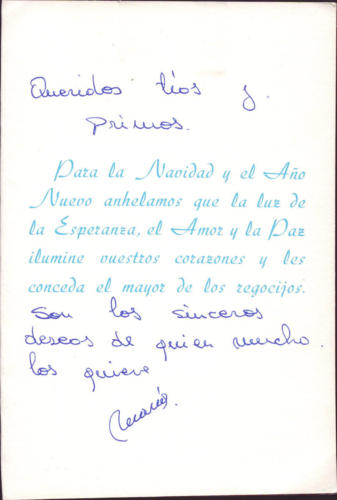 Queridos tíos y
primos.
Para la Navidad y el Año
Nuevo anhelamos que la luz de
la Esperanza, el Amor y la Paz
ilumine vuestros corazones y les
conceda el mayor de los regocijos.
Son los sinceros
deseos de quien mucho
los quiere